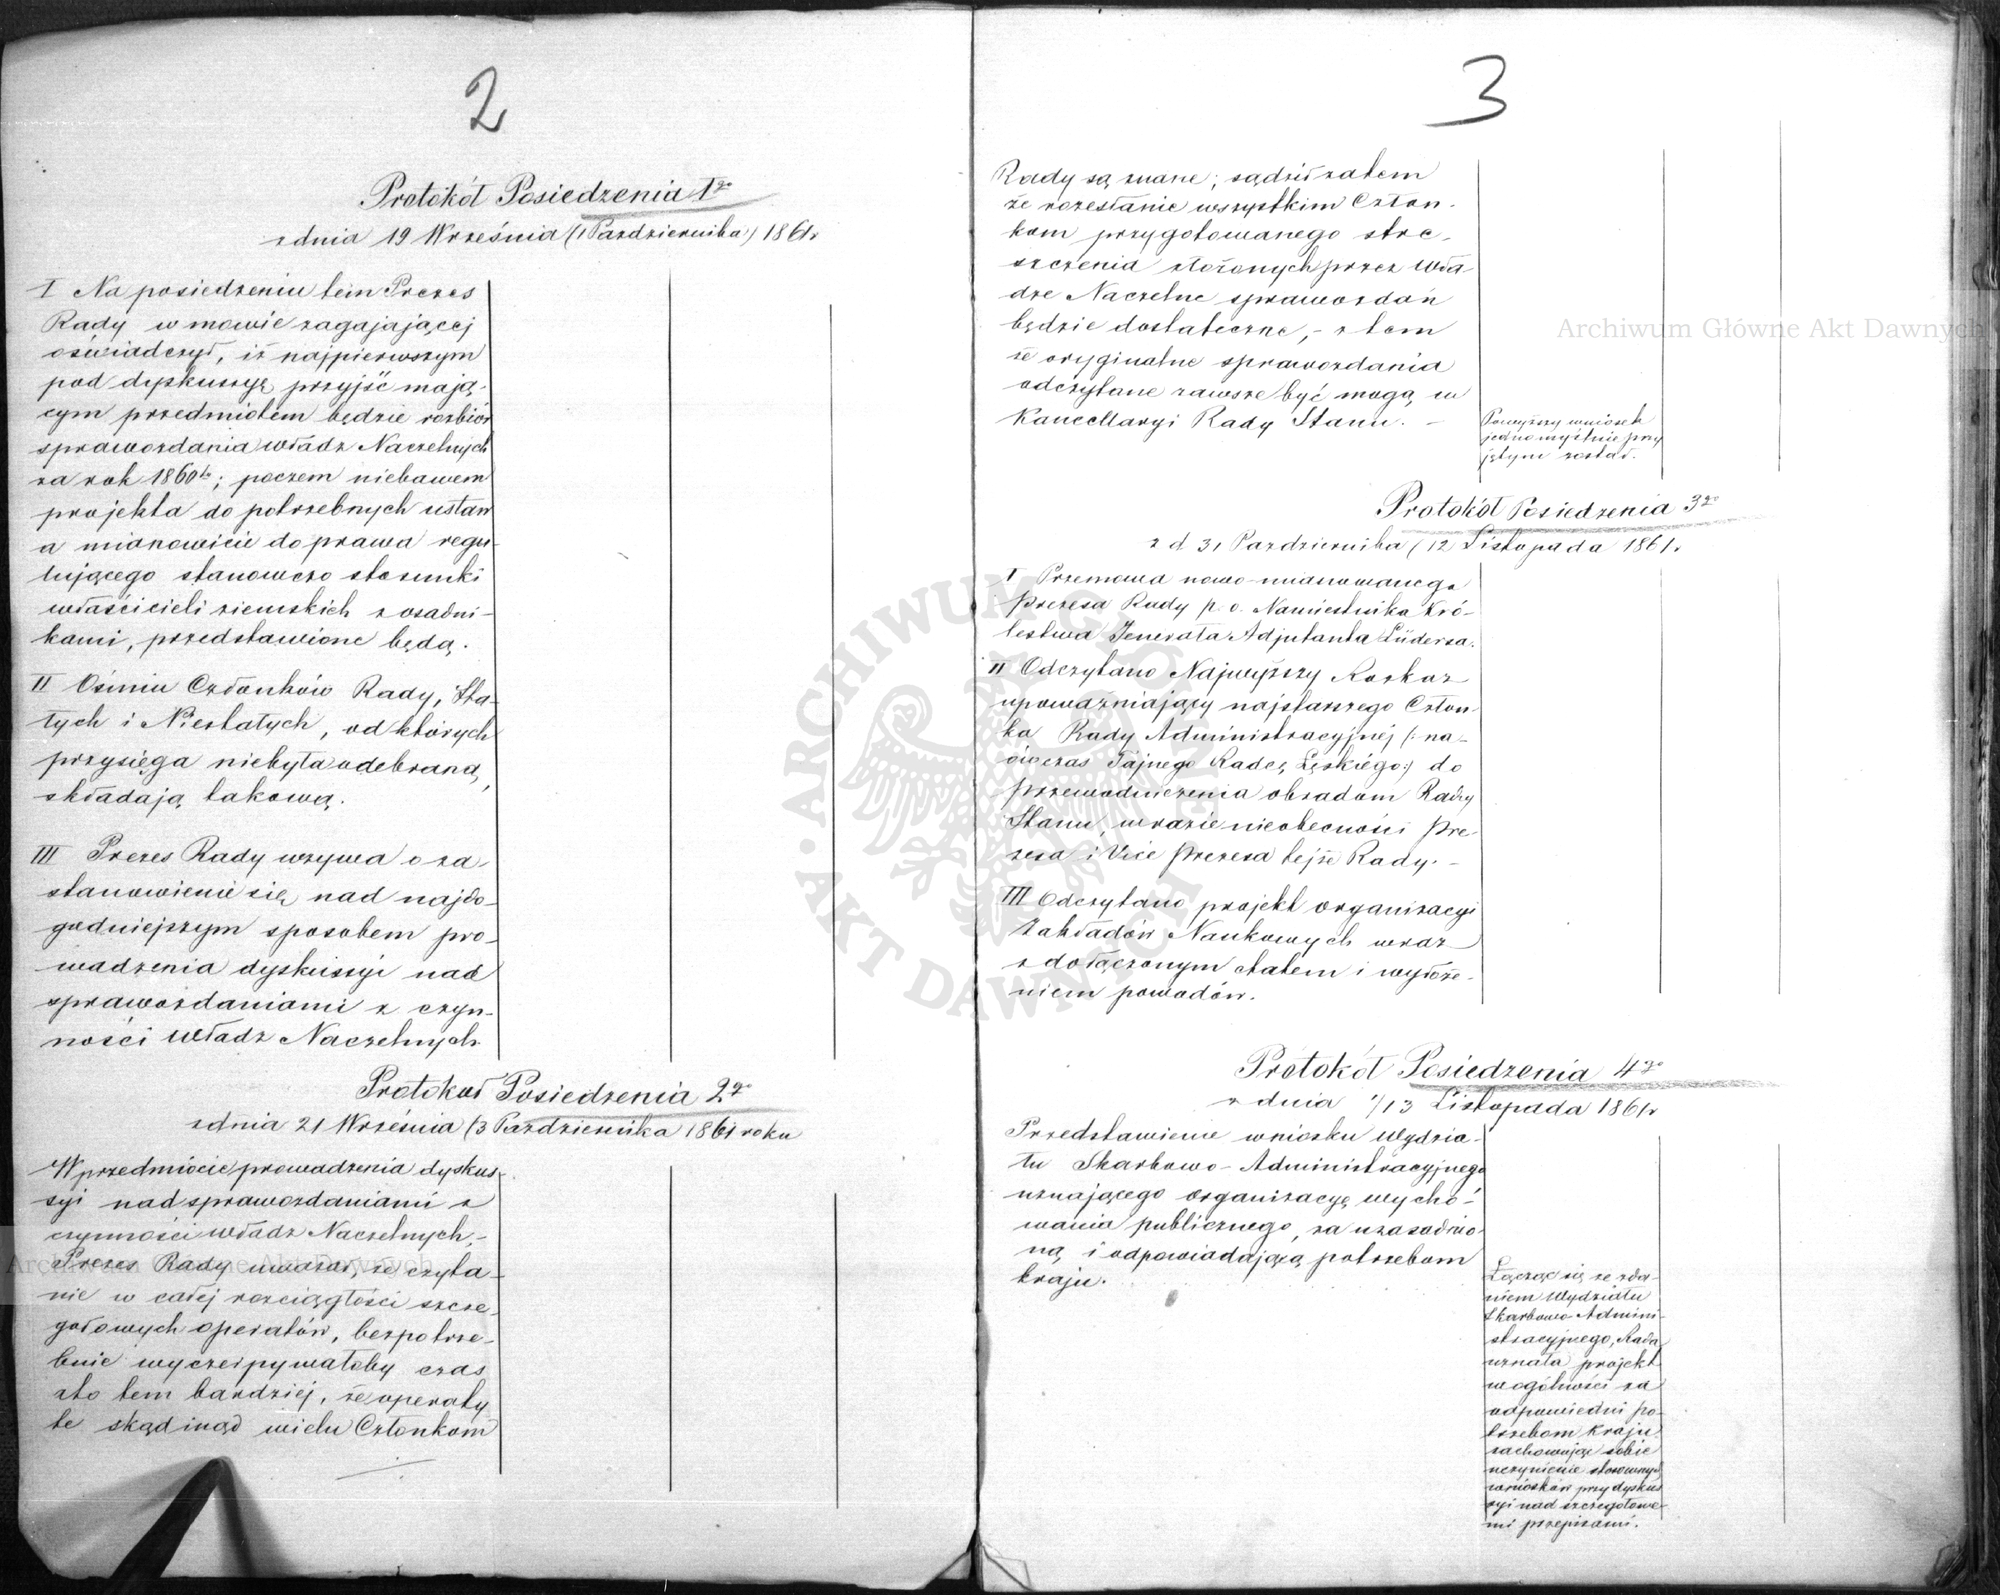 2
Protokół Posiedzenia 1go
z dnia 19 Września (1 Października) 1861r
I Na posiedzeniu tem Prezes
Rady w mowie zagajającej
oświadczył, iż najpierwszym
pod dyskussyą przyjść mają-
cym przedmiotem będzie rozbiór
sprawozdania władz Naczelnych
za rok 1860ty; poczem niebawem
projekta do potrzebnych ustaw
a mianowicie do prawa regu-
lującego stanowczo stosunki
właścicieli ziemskich z osadni-
kami, przedstawione będą.
II Ośmiu Członków Rady, Sta-
łych i Niestałych, od których
przysięga niebyła odebraną,
składają takową.
III Prezes Rady wzywa o za-
stanowienie się nad najdo-
godniejszym sposobem pro-
wadzenia dyskussyi nad
sprawozdaniami z czyn-
ności Władz Naczelnych.
Protokuł Posiedzenia 2go
z dnia 21 Września (3 Października 1861 roku
W przedmiocie prowadzenia dyskus-
syi nad sprawozdaniami z
czynności władz Naczelnych,-
Prezes Rady uważał, że czyta-
nie w całej rozciągłości szcze-
gółowych operatów, bezpotrze-
bnie wyczerpywałoby czas
a to tem bardziej, że operaty
te skądinąd wielu Członkom
3
Rady są znane; sądził zatem
że rozesłanie wszystkim Człon-
kom przygotowanego stre-
szczenia złożonych przez Wła-
dze Naczelne sprawozdań
będzie dostateczne,- z tem
że oryginalne sprawozdania
odczytane zawsze być mogą w
Kancellaryi Rady Stanu. -
Powyższy wniosek
jednomyślnie przy
jętym został.
Protokół Posiedzenia 3go
z d. 31 Października (12 Listopada 1861r
I Przemowa nowo-mianowanego
Prezesa Rady p. o. Namiestnika Kró-
lestwa Jenerała Adjutanta Lüdersa.
II Odczytano Najwyższy Rozkaz
upoważniający najstarszego Człon-
ka Rady Administracyjnej (: na-
ówczas Tajnego Radcę Łęskiego:) do
przewodniczenia obradom Rady
Stanu, w razie nieobecności Pre-
zesa i Vice Prezesa tejże Rady. -
III Odczytano projekt organizacyi
Zakładów Naukowych wraz
z dołączonym etatem i wyłoże-
niem powodów.
Protokół Posiedzenia 4go
z dnia 1/13 Listopada 1861r
Przedstawienie wniosku Wydzia-
łu Skarbowo-Administracyjnego
uznającego organizacyę wycho-
wania publicznego, za uzasadnio-
ną i odpowiadającą potrzebom
kraju.
Łącząc się ze zda-
niem Wydziału
Skarbowo-Admini-
stracyjnego, Rada
uznała projekt
w ogólności za
odpowiedni po-
trzebom Kraju
zachowując sobie
uczynienie stosownych
wniosków przy dyskus
syi nad szczegółowe-
mi przepisami.
Archiwum Główne Akt Dawnych
Archiwum Główne Akt Dawnych
· ARCHIWUM GŁÓWNE · AKT DAWNYCH